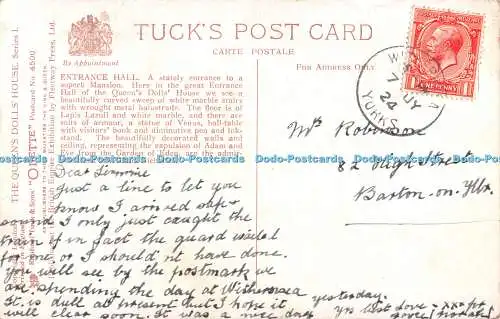 TUCK'S POST CARD
CARTE POSTALE
By Appointment
FOR ADDRESS ONLY.
ENTRANCE HALL. A stately entrance to a
superb Mansion. Here in the great Entrance
Hall of the Queen's Dolls' House we see a
beautifully curved sweep of white marble stairs
with wrought metal balustrade. The floor is of
Lapis Lazuli and white marble, and there are
suits of armour, a statue of Venus, hall-table
with visitors' book and diminutive pen and ink-
stand. The beautifully decorated walls and
ceiling, representing the expulsion of Adam and
Eve from the Garden of Eden, are the
THE QUEEN'S DOLLS' HOUSE. Series I.
"OILETTE" Postcard No. 4500
British Empire Exhibition by Fleetway Press, Ltd.
ONE PENNY
7 JY
24
YORKS
Mrs Robinson
82 High Street
Barton-on-
Dear
Just a line to let you
know I arrived safe &
sound I only just caught the
train if in fact the guard
for me or I should'nt have done.
You will see by the postmark we
are spending the day at Withernsea
It is dull at present but I hope it
will clear soon. It was a nice day
yesterday.
love
Dodo-Postcards Dodo-Postcards Dodo-Postcards Dodo-Postcards Dodo-Postcards